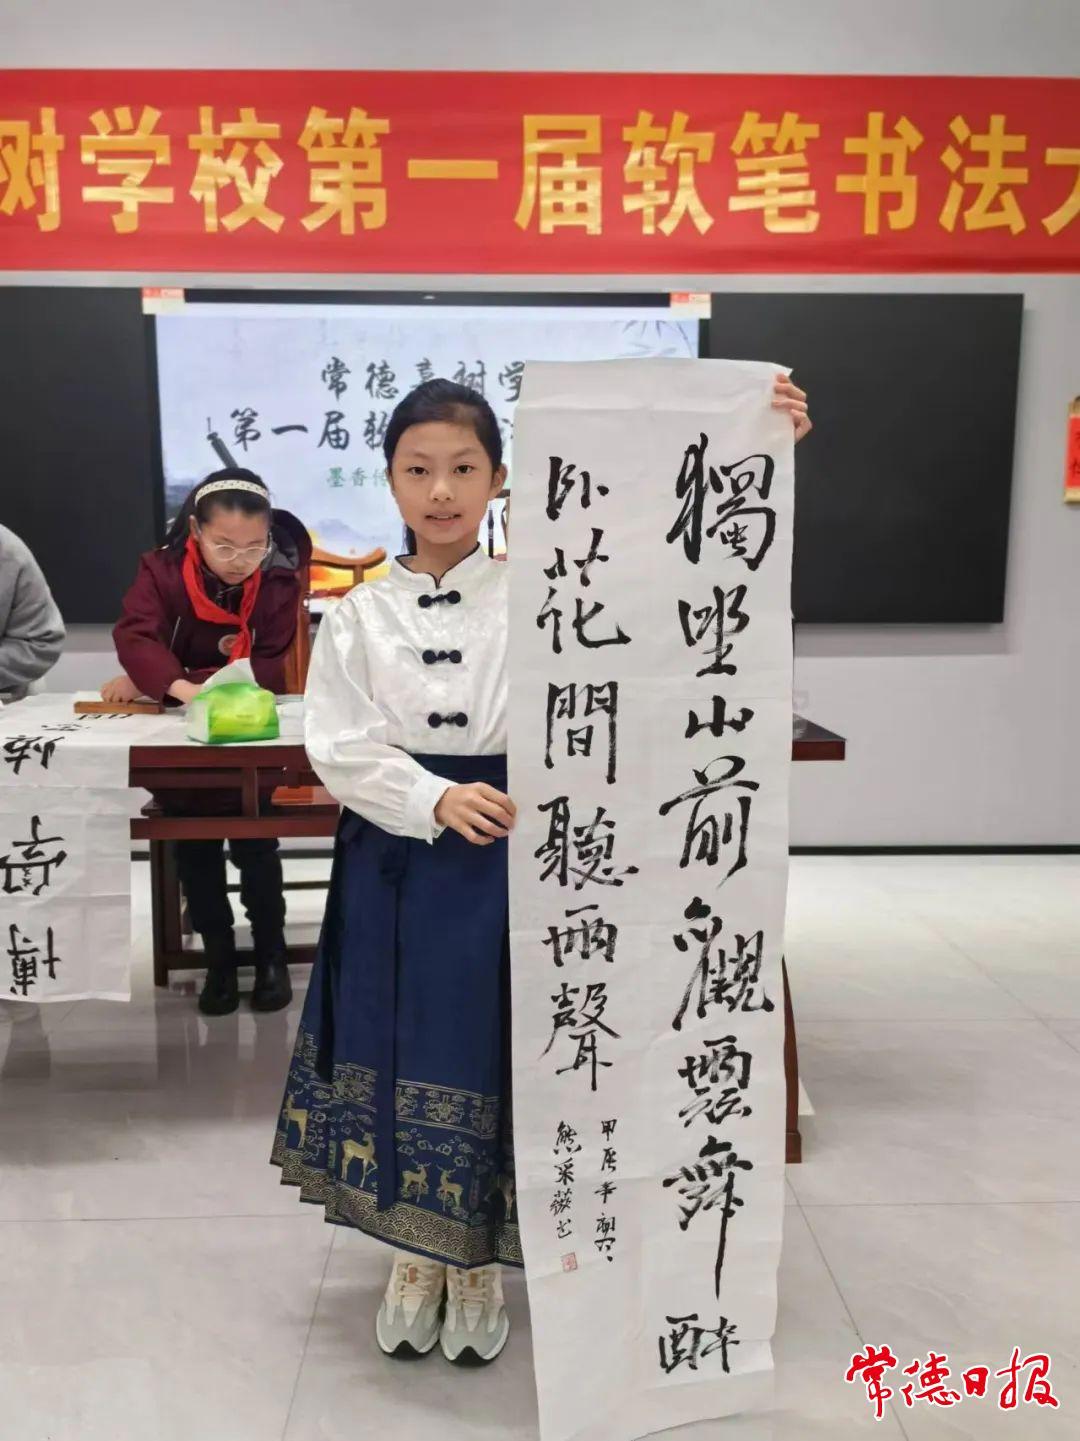 树学校第一届软笔书法大
常德嘉树学
第一届软
墨香传
獨坐山前觀雲舞醉
卧花間聽雨聲
甲辰年初冬
熊采薇书
博学
常德日报